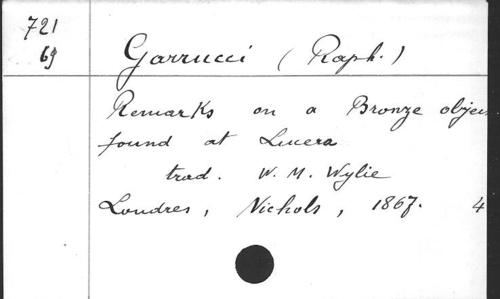 721
69
Garrucci (Raph.)
Remarks on a Bronze objec
found at Lucera
trad. W. M. Wylie
Londres, Nichols, 1867. 4